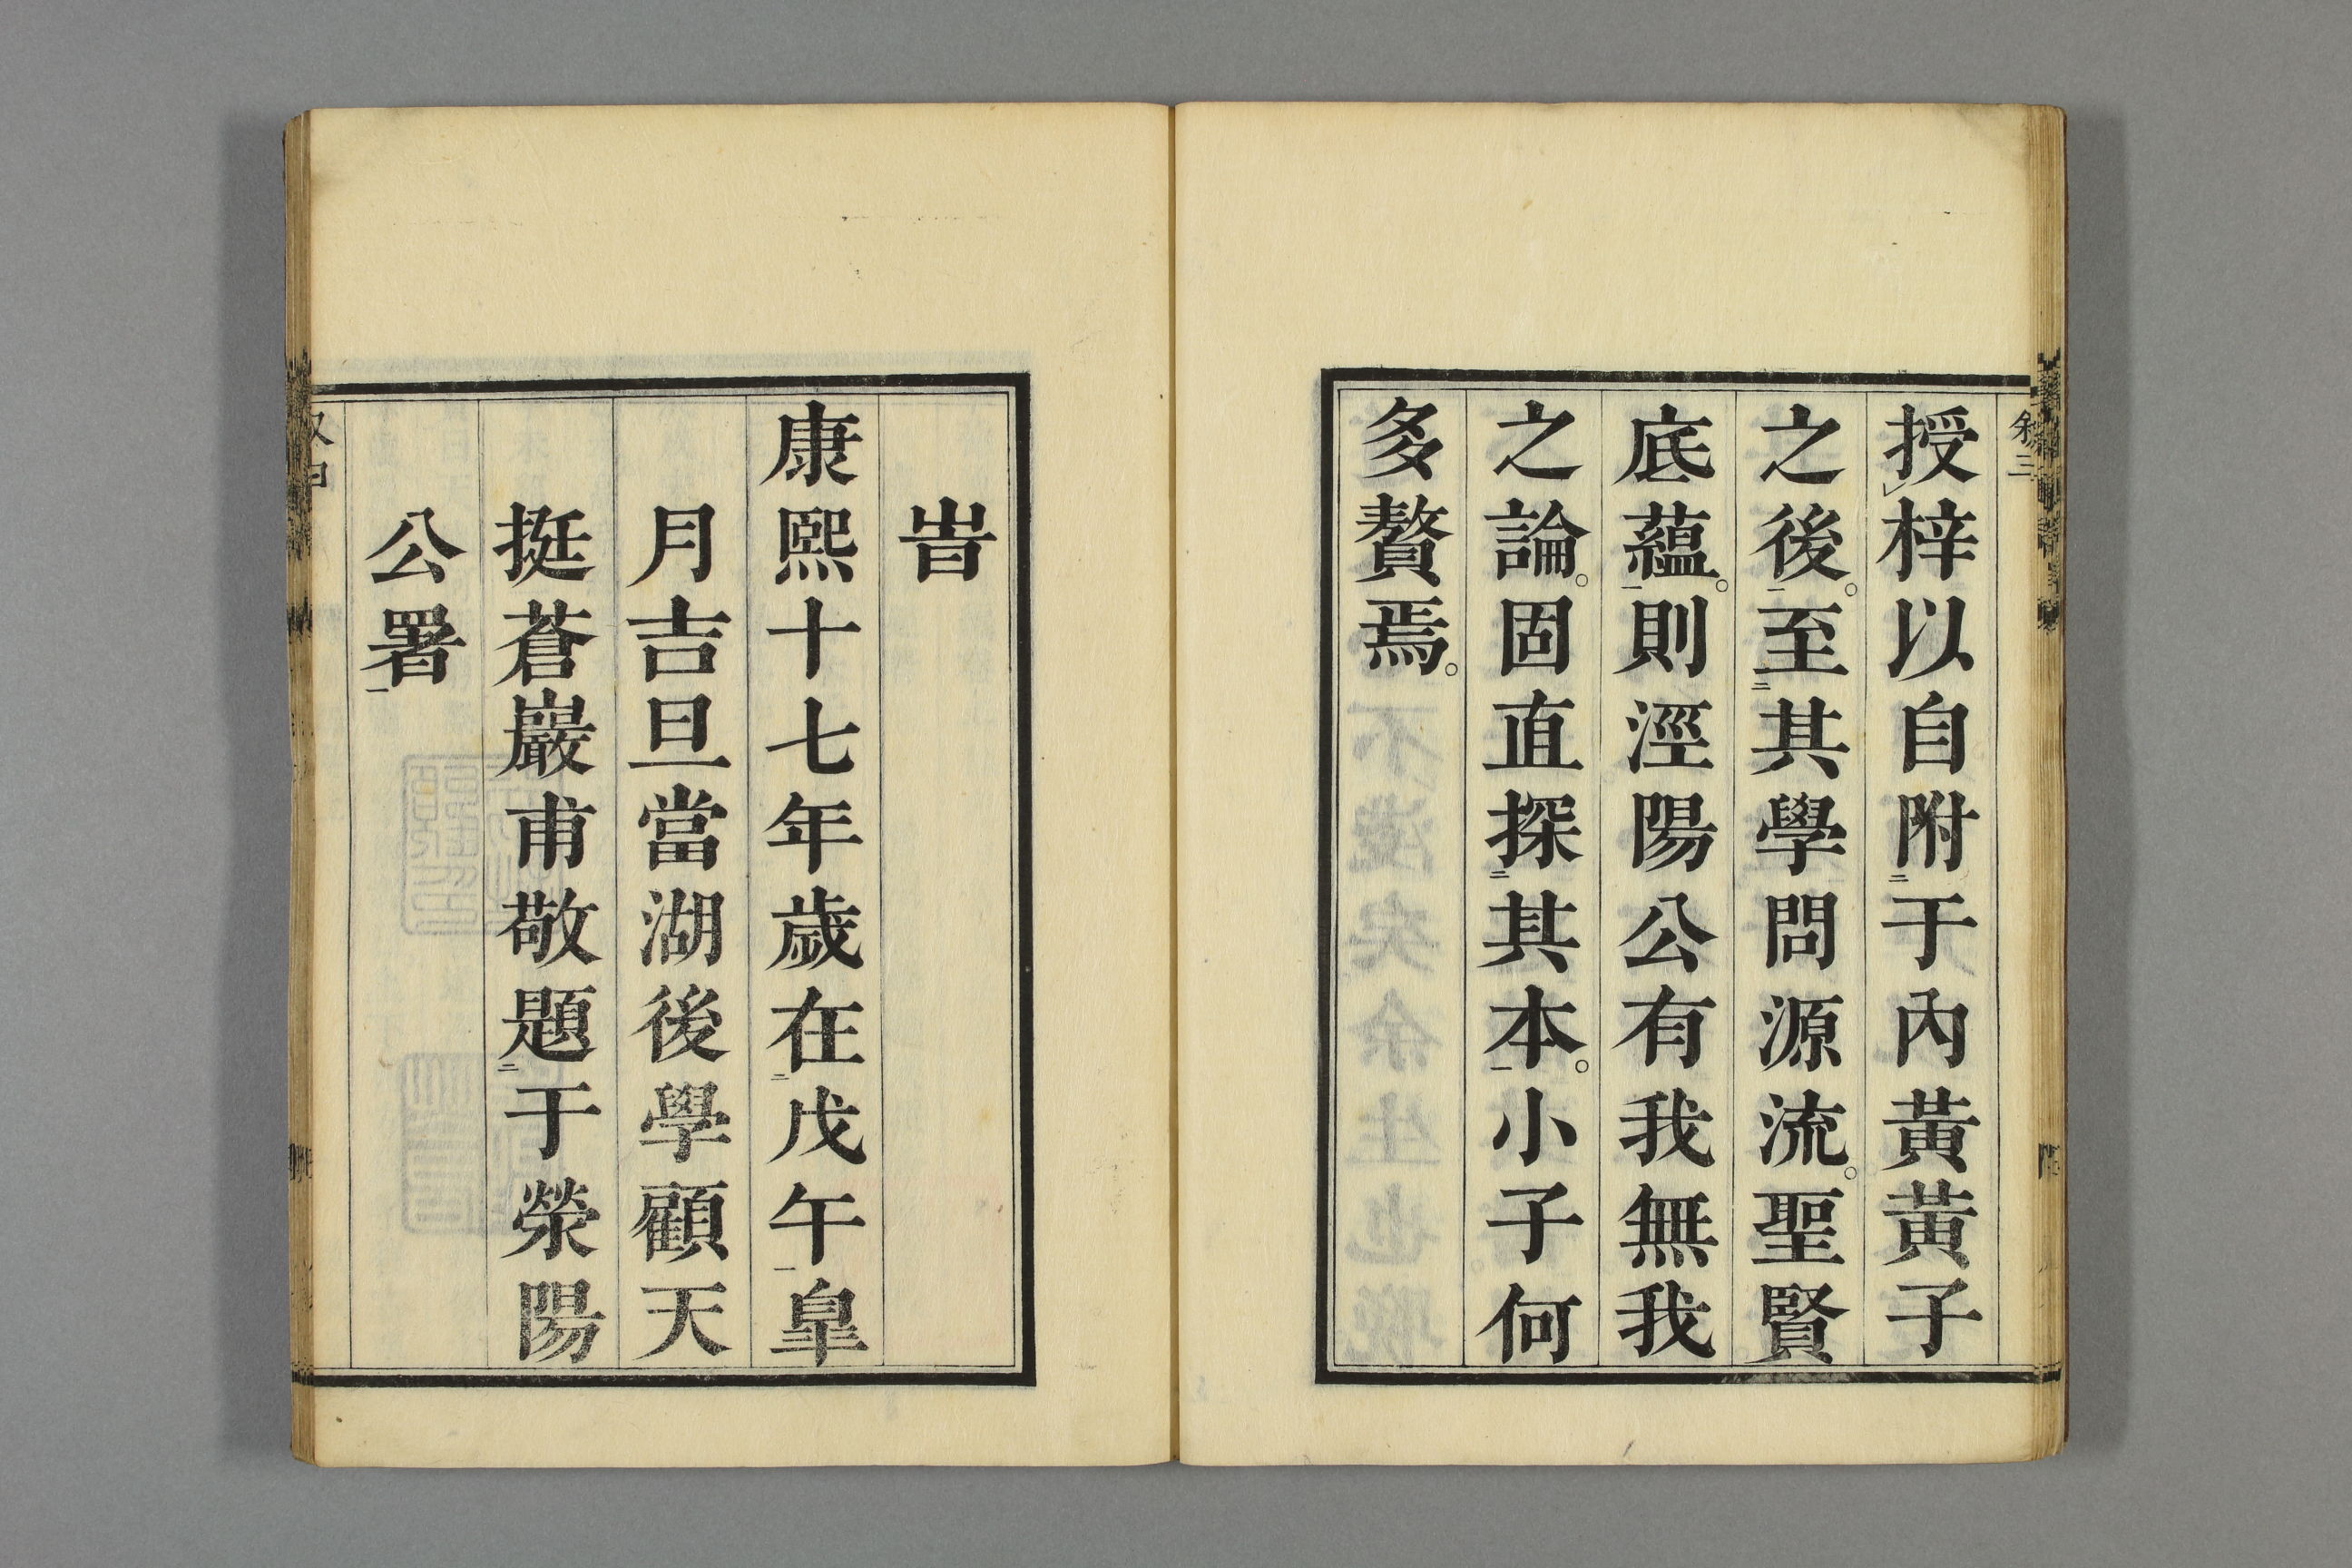 叙三
授梓以自附于內黃黃子
之後。至其學問源流。聖賢
底蘊。則涇陽公有我無我
之論。固直探其本。小子何
多贅焉。
旹
康熙十七年歲在戊午皐
月吉旦當湖後學顧天
挺蒼巖甫敬題于滎陽
公署